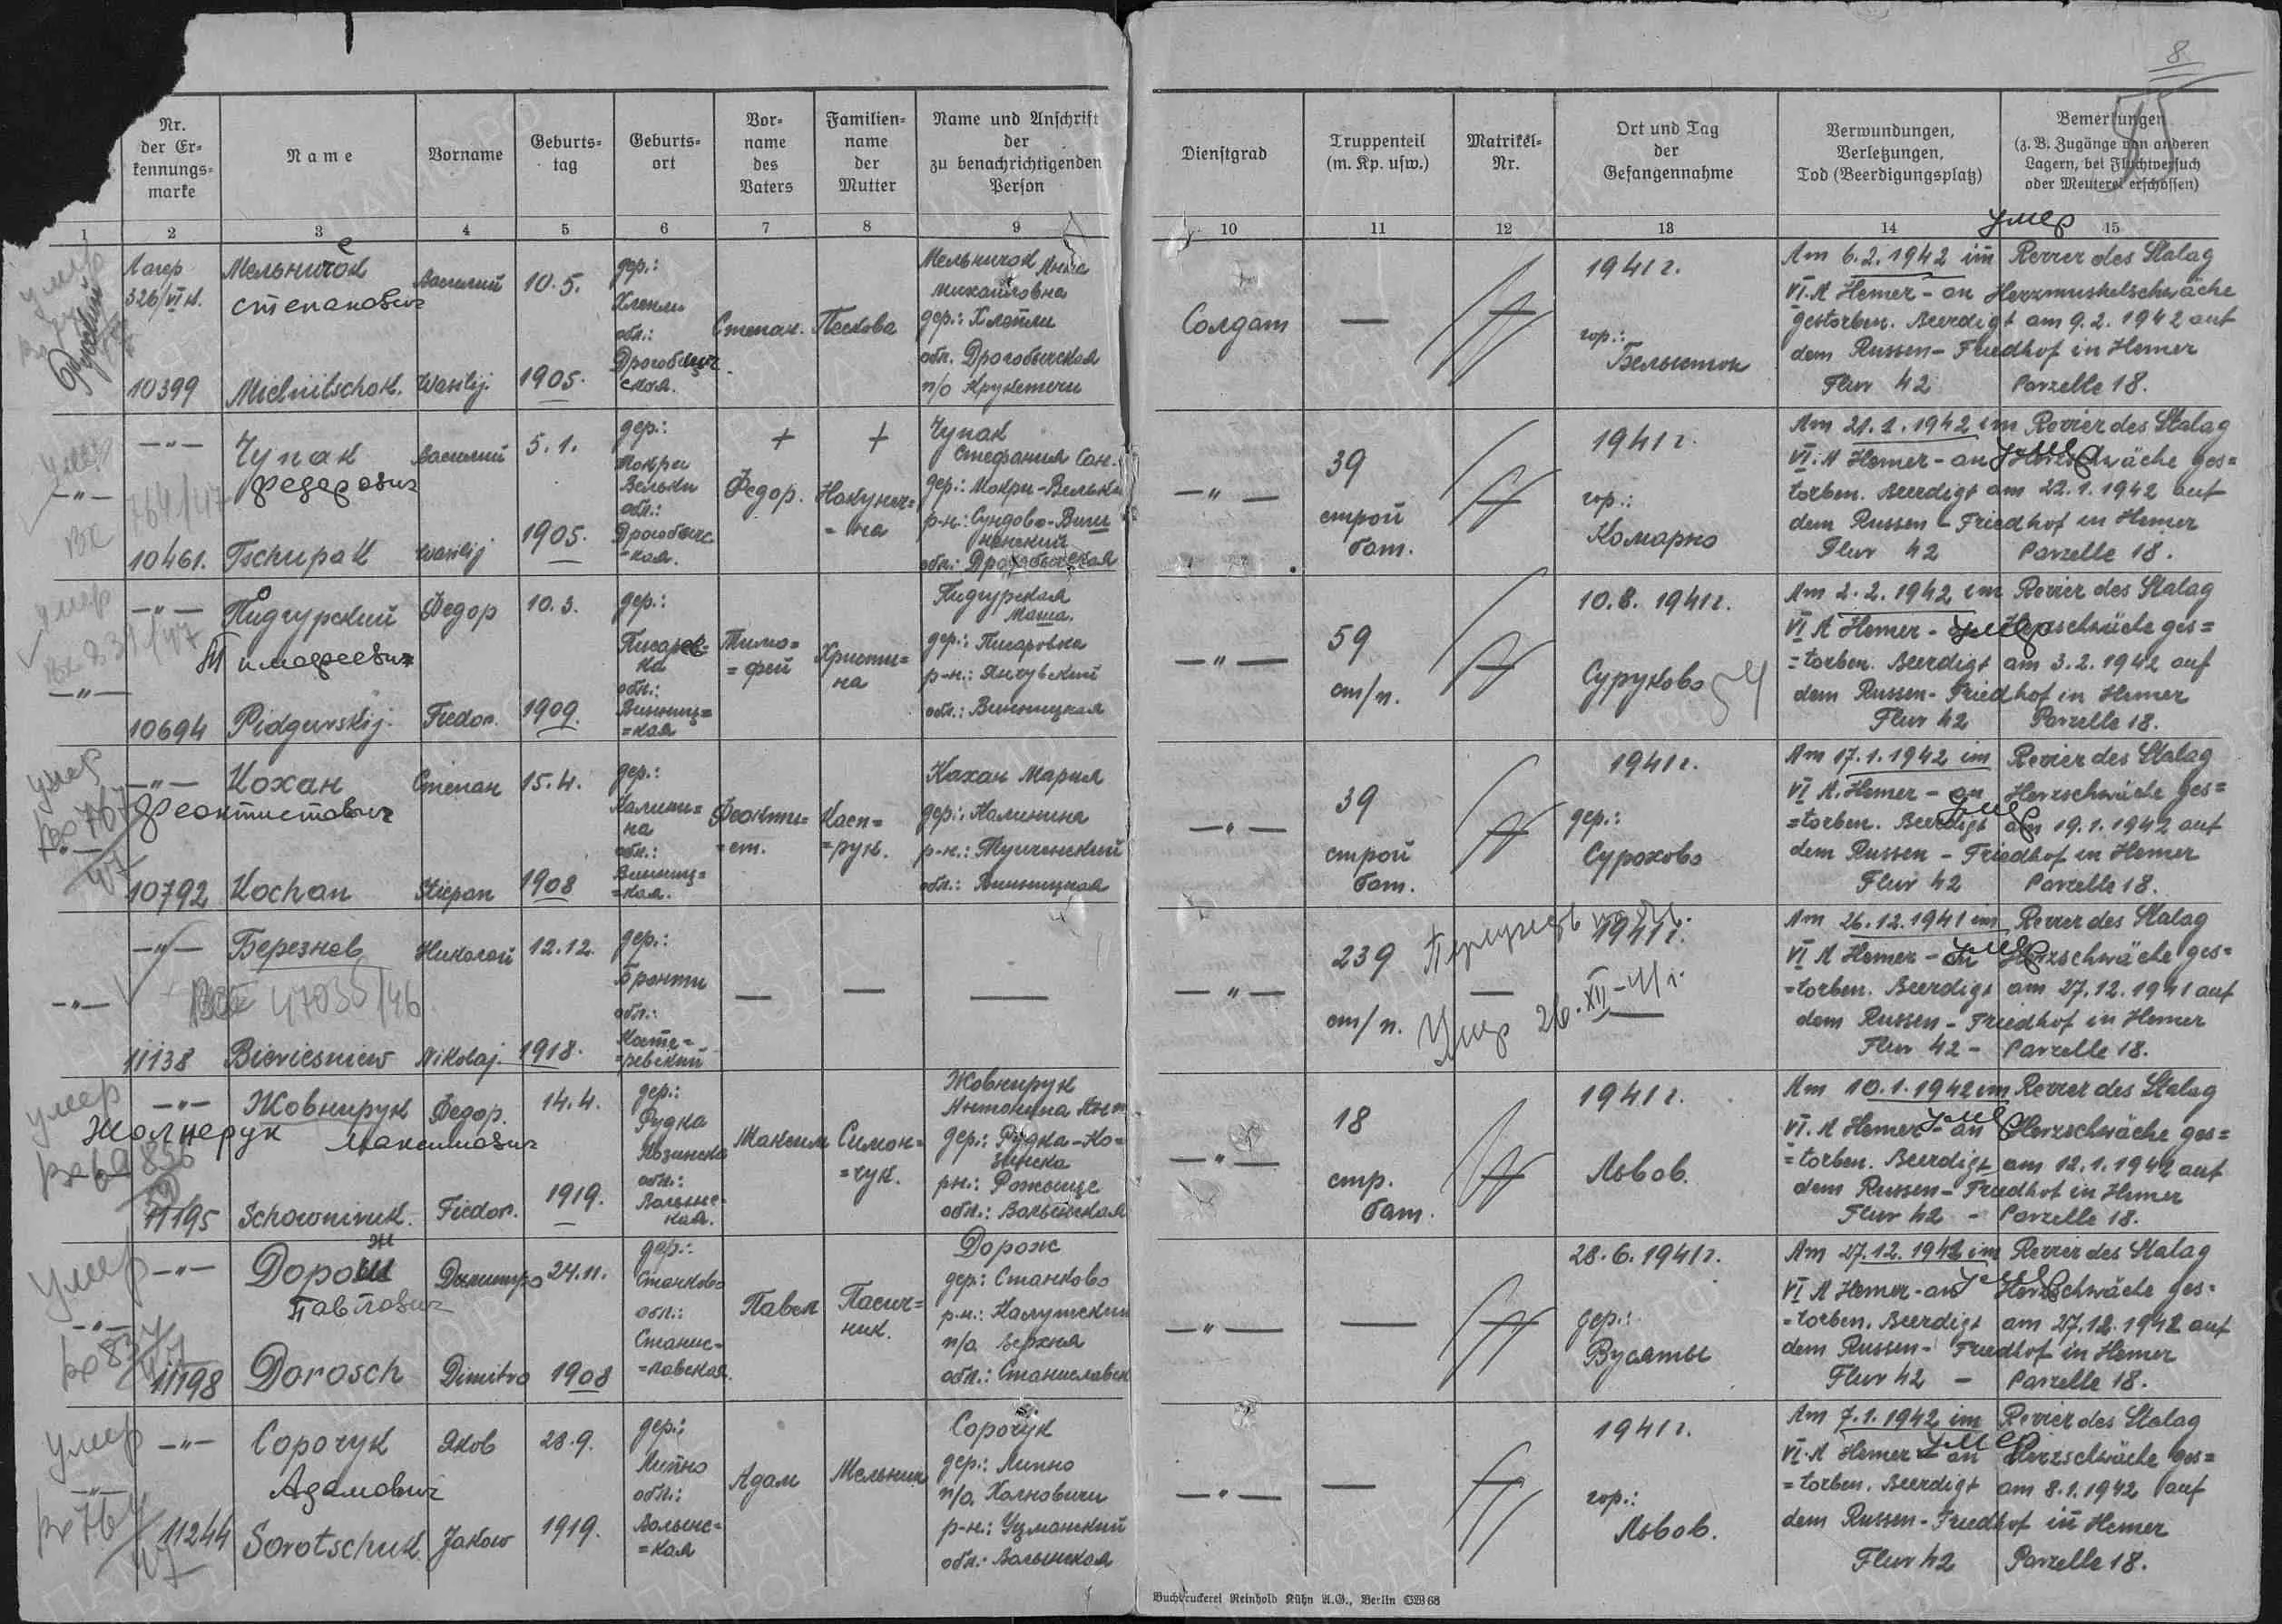 8
Nr. der Er-kennungs-marke
Name
Vorname
Geburts-tag
Geburts-ort
Vor-name des Vaters
Familien-name der Mutter
Name und Anschrift der zu benachrichtigenden Person
Dienstgrad
Truppenteil (m. Kp. usw.)
Matrikel-Nr.
Ort und Tag der Gefangennahme
Verwundungen, Verletzungen, Tod (Beerdigungsplatz)
Bemerkungen (z. B. Zugänge von anderen Lagern, bei Fluchtversuch oder Meuterei erschossen)
1 2 3 4 5 6 7 8 9 10 11 12 13 14 15
умер
Лагер 326/VI К.
Мельничок Василий 10.5.
степанович
дер.: Хлопли обл.: Дрогобычская.
Степан. Пескова
Мельничок Михайловна
дер.: Хлопли
обл. Дрогобычская
п/о Крукеничи
10399 Mielnitschok. Wasilij. 1905.
Солдат —
1941 г.
гор.: Белосток
Am 6.2.1942 im Revier des Stalag
VI. A Hemer - an Herzmuskelschwäche
gestorben. Beerdigt am 9.2.1942 auf
dem Russen-Friedhof in Hemer
Flur 42 Parzelle 18.
умер
—"— Чупак Василий 5.1.
федорович
дер.: Мокри Вельки обл.:
Федор.
Чупак Стефания
дер.: Мокри-Вельки
обл.: Дрогобычская
764/47
10461. Tschupak Wasilij 1905.
—"— 39 строй бат.
1941 г.
гор.: Комарно
Am 21.1.1942 im Revier des Stalag
VI. A Hemer - an Herzschwäche ges=
torben. Beerdigt am 22.1.1942 auf
dem Russen-Friedhof in Hemer
Flur 42 Parzelle 18.
умер
—"— Пидгурский Федор 10.3.
Тимофеевич
дер.: Писаревка обл.: Винниц=кая
Тимо=фей Христи=на
Пидгурская Маша.
дер.: Писаровка
обл.: Винницкая
10694 Pidgurskij. Fiedor. 1909.
—"— 59 ст/п.
10.8.1941 г.
Суруково
Am 2.2.1942 im Revier des Stalag
VI A Hemer - an Herzschwäche ges=
=torben. Beerdigt am 3.2.1942 auf
dem Russen-Friedhof in Hemer
Flur 42 Parzelle 18.
умер
—"— Кохан Степан 15.4.
Феоктистович
767/47
дер.: Калини=на обл.: Винниц=кая.
Феокти=ст. Касп=рук.
Кахан Мария
дер.: Калинина
обл.: Винницкая
10792 Kochan Stiepan 1908
39 строй бат.
1941 г.
дер.: Сурохово
Am 17.1.1942 im Revier des Stalag
VI A. Hemer - an Herzschwäche ges=
=torben. Beerdigt am 19.1.1942 auf
dem Russen - Friedhof in Hemer
Flur 42 Parzelle 18.
—"— Березнев Николай 12.12.
47035/46
дер.: Бронти обл.:
— — —
11138 Bieriesniew Nikolaj. 1918.
—"— 239 ст/п. —
1941 г.
Умер 26.XII-41 г.
Am 26.12.1941 im Revier des Stalag
VI A Hemer - an Herzschwäche ges=
=torben. Beerdigt am 27.12.1941 auf
dem Russen - Friedhof in Hemer
Flur 42 - Parzelle 18.
умер
—"— Жовнирук Федор. 14.4.
Жолнерук Максимович
дер.: Рудка Козинска обл.: Волынс-кая.
Максим Симон=чук.
Жовнирук Антонина
дер.: Рудка-Ко=зинска
рн.: Рожыще
обл.: Волынская
11195 Schowniruk. Fiedor. 1919.
—"— 18 стр. бат.
1941 г.
Львов.
Am 10.1.1942 im Revier des Stalag
VI. A Hemer - an Herzschwäche ges=
=torben. Beerdigt am 12.1.1942 auf
dem Russen-Friedhof in Hemer
Flur 42 - Parzelle 18.
умер
—"— Дорош Димитро 24.11.
Павлович
дер.: Станково обл.: Станис-=лавская.
Павел Пасич=ник.
Дорож
дер.: Станково
р.н.: Калушский
п/о Верхня
обл.: Станиславск
11198 Dorosch Dimitro 1908
—"— —
28.6.1941 г.
дер.: Вусяты
Am 27.12.1942 im Revier des Stalag
VI A Hemer-an Herzschwäche ges-
=torben. Beerdigt am 27.12.1942 auf
dem Russen- Friedhof in Hemer
Flur 42 - Parzelle 18.
умер
—"— Сорочук Яков 28.9.
Адамович
764/47
дер.: Липно обл.: Волынс-=кая
Адам Мельник
Сорочук
дер.: Липно
п/о. Холновичи
р-н.: Уцманский
обл.: Волынская
11244 Sorotschuk. Jakow 1919.
—"— —
1941 г.
гор.: Львов.
Am 7.1.1942 im Revier des Stalag
VI. A Hemer - an Herzschwäche ges=
=torben. Beerdigt am 8.1.1942 auf
dem Russen-Friedhof in Hemer
Flur 42 Parzelle 18.
Buchdruckerei Reinhold Kühn A.G., Berlin SW 68